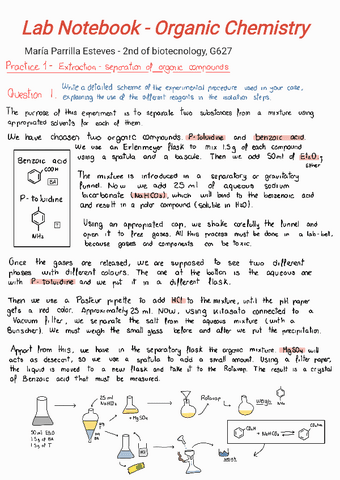 Lab Notebook - Organic Chemistry
María Parrilla Esteves - 2nd of biotecnology, G627
Practice 1 - Extraction - separation of organic compounds
Question 1.
Write a detailed scheme of the experimental procedure used in your case,
explaining the use of the different reagents in the isolation steps.
The purpose of this experiment is to separate two substances from a mixture using
appropiated solvents for each of them.
We have choosen two organic compounds P-toluidine and benzoic acid.
We use an Erlenmeyer flask to mix 1.5g of each compound
using a spatula and a bascule. Then we add 50ml of Et₂O,
ether
The mixture is introduced in a separatory or gravitatory
funnel. Now we add 25 ml of aqueous sodium
bicarbonate (NaHCO₃), which will bind to the benzenoic acid
and result in a polar compound (soluble in H₂O).
Using an appropiated cap, we shake carefully the funnel and
open it to free gases. All this process must be done in a lab-bel,
because gases and components can be toxic.
Benzoic acid
COOH
BA
P-toluidine
T
NH₂
Once the gases are released, we are supposed to see two different
phases with different colours. The one at the bottom is the aqueous one
with P-toluidine and we put it in a different flask.
Then we use a Pasteur pipette to add HCl to the mixture, until the pH paper
gets a red color. Approximately 25 ml. Now, using kitasato connected to a
Vacuum filter, we separate the salt from the aqueous mixture (with a
Bunscher). We must weigh the small glass before and after we put the precipitation.
Appart from this, we have in the separatory flask the organic mixture. MgSO₄ will
acts as desecant, so we use a spatula to add a small amount. Using a filter paper,
the liquid is moved to a new flask and take it to the Rotavap. The result is a crystal
of Benzoic acid that must be measured.
25 ml
NaHCO₃
+ MgSO₄
Rotavap
weigh
50ml Et₂O
1.5g of BA
1.5g of T
HCl
+ NaHCO₃